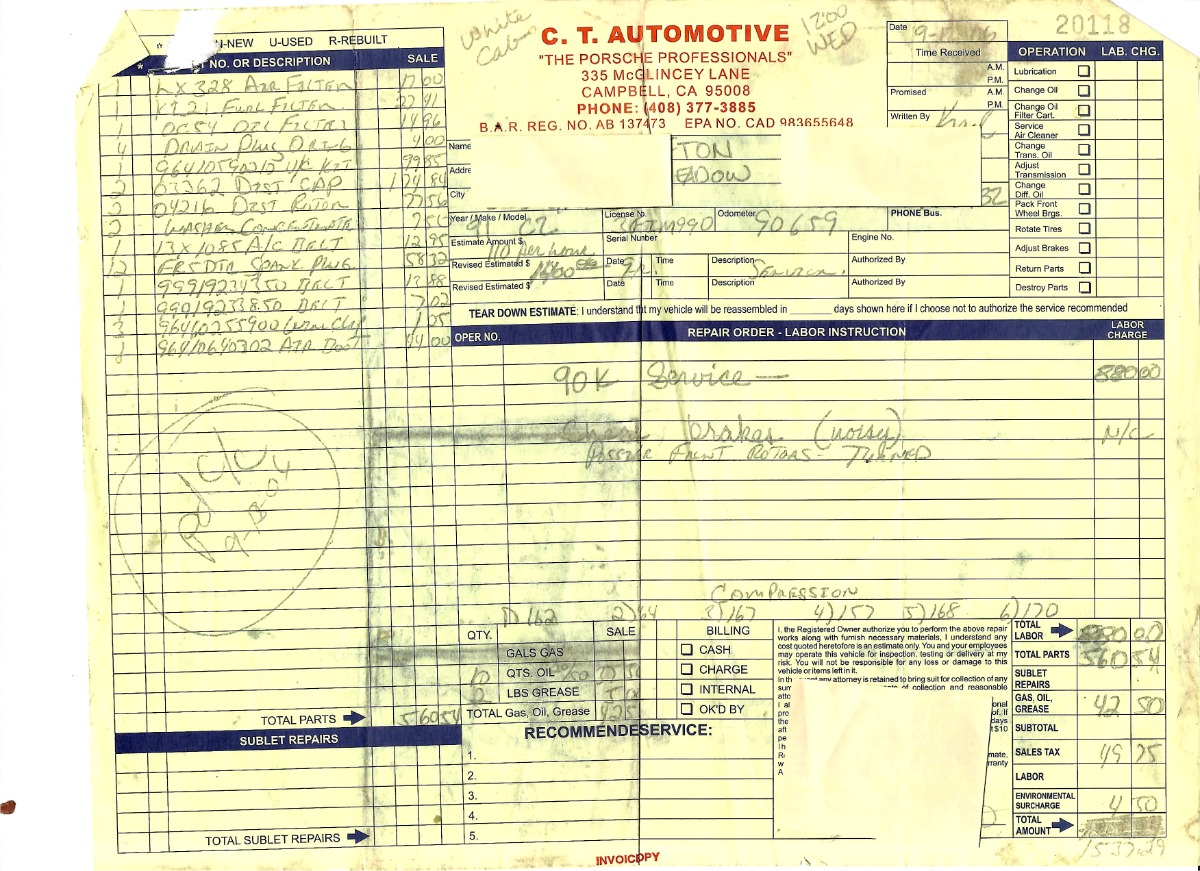 N-NEW U-USED R-REBUILT
NO. OR DESCRIPTION SALE
1 LX 328 AIR FILTER 17 00
1 FUEL FILTER 27 41
1 OC54 OIL FILTER 14 96
4 DRAIN PLUG O RING 4 00
1 KIT 99 85
2 03262 DIST CAP 174 84
2 04216 DIST ROTOR 77 56
2 WASHER CONCENTRATE 7 50
1 13X1085 A/C BELT 12 95
12 FR5DTC SPARK PLUG 58 32
1 99919234350 BELT 13 88
1 99919233850 BELT 7 02
3 96410255900
1 96410640302 AIR 44 00
TOTAL PARTS 560 54
SUBLET REPAIRS
TOTAL SUBLET REPAIRS
White Cab
17:00 WED
C. T. AUTOMOTIVE
"THE PORSCHE PROFESSIONALS"
335 McGLINCEY LANE
CAMPBELL, CA 95008
PHONE: (408) 377-3885
B.A.R. REG. NO. AB 137473 EPA NO. CAD 983655648
Date
20118
Time Received
A.M.
P.M.
Promised
A.M.
P.M.
Written By
Name TON
Addre EADOW
City
Year / Make / Model 91 C2
License No.
Odometer 90659
PHONE Bus.
Estimate Amount $ 110 per hour
Serial Number
Engine No.
Revised Estimated $
Date
Time
Description Service
Authorized By
Revised Estimated $
Date
Time
Description
Authorized By
OPERATION LAB. CHG.
Lubrication
Change Oil
Change Oil Filter Cart.
Service Air Cleaner
Change Trans. Oil
Adjust Transmission
Change Diff. Oil
Pack Front Wheel Brgs.
Rotate Tires
Adjust Brakes
Return Parts
Destroy Parts
TEAR DOWN ESTIMATE: I understand tht my vehicle will be reassembled in ______ days shown here if I choose not to authorize the service recommended
OPER NO. REPAIR ORDER - LABOR INSTRUCTION LABOR CHARGE
90K Service — 880 00
Check brakes (noisy) N/C
FRONT ROTORS - TURNED
COMPRESSION
1) 162 2) 164 3) 167 4) 157 5) 168 6) 170
QTY. SALE
GALS GAS
QTS. OIL
LBS GREASE
TOTAL Gas, Oil, Grease
BILLING
CASH
CHARGE
INTERNAL
OK'D BY
I, the Registered Owner authorize you to perform the above repair
works along with furnish necessary materials, I understand any
cost quoted heretofore is an estimate only. You and your employees
may operate this vehicle for inspection, testing or delivery at my
risk. You will not be responsible for any loss or damage to this
vehicle or items left in it.
any attorney is retained to bring suit for collection of any
of collection and reasonable
TOTAL LABOR 880 00
TOTAL PARTS 560 54
SUBLET REPAIRS
GAS, OIL, GREASE 42 50
SUBTOTAL
SALES TAX 49 75
LABOR
ENVIRONMENTAL SURCHARGE 4 50
TOTAL AMOUNT
1537.29
RECOMMENDESERVICE:
1.
2.
3.
4.
5.
INVOICOPY